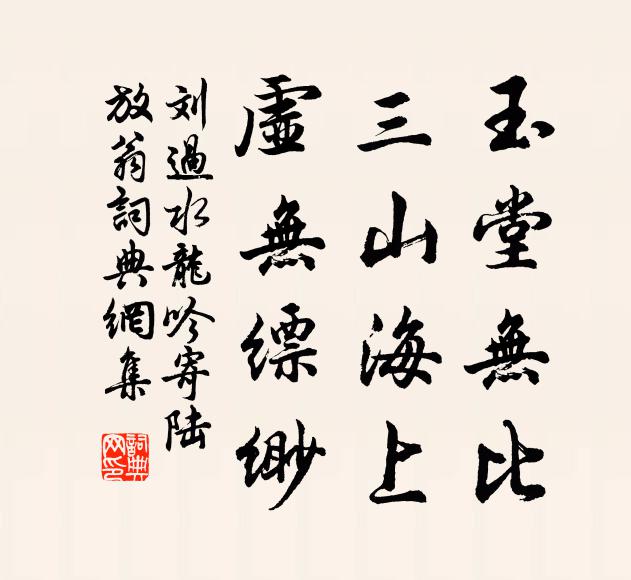 玉堂無比
三山海上
虛無縹緲
刘過水龍吟寄陆
放翁詞典網集
詞典
网印